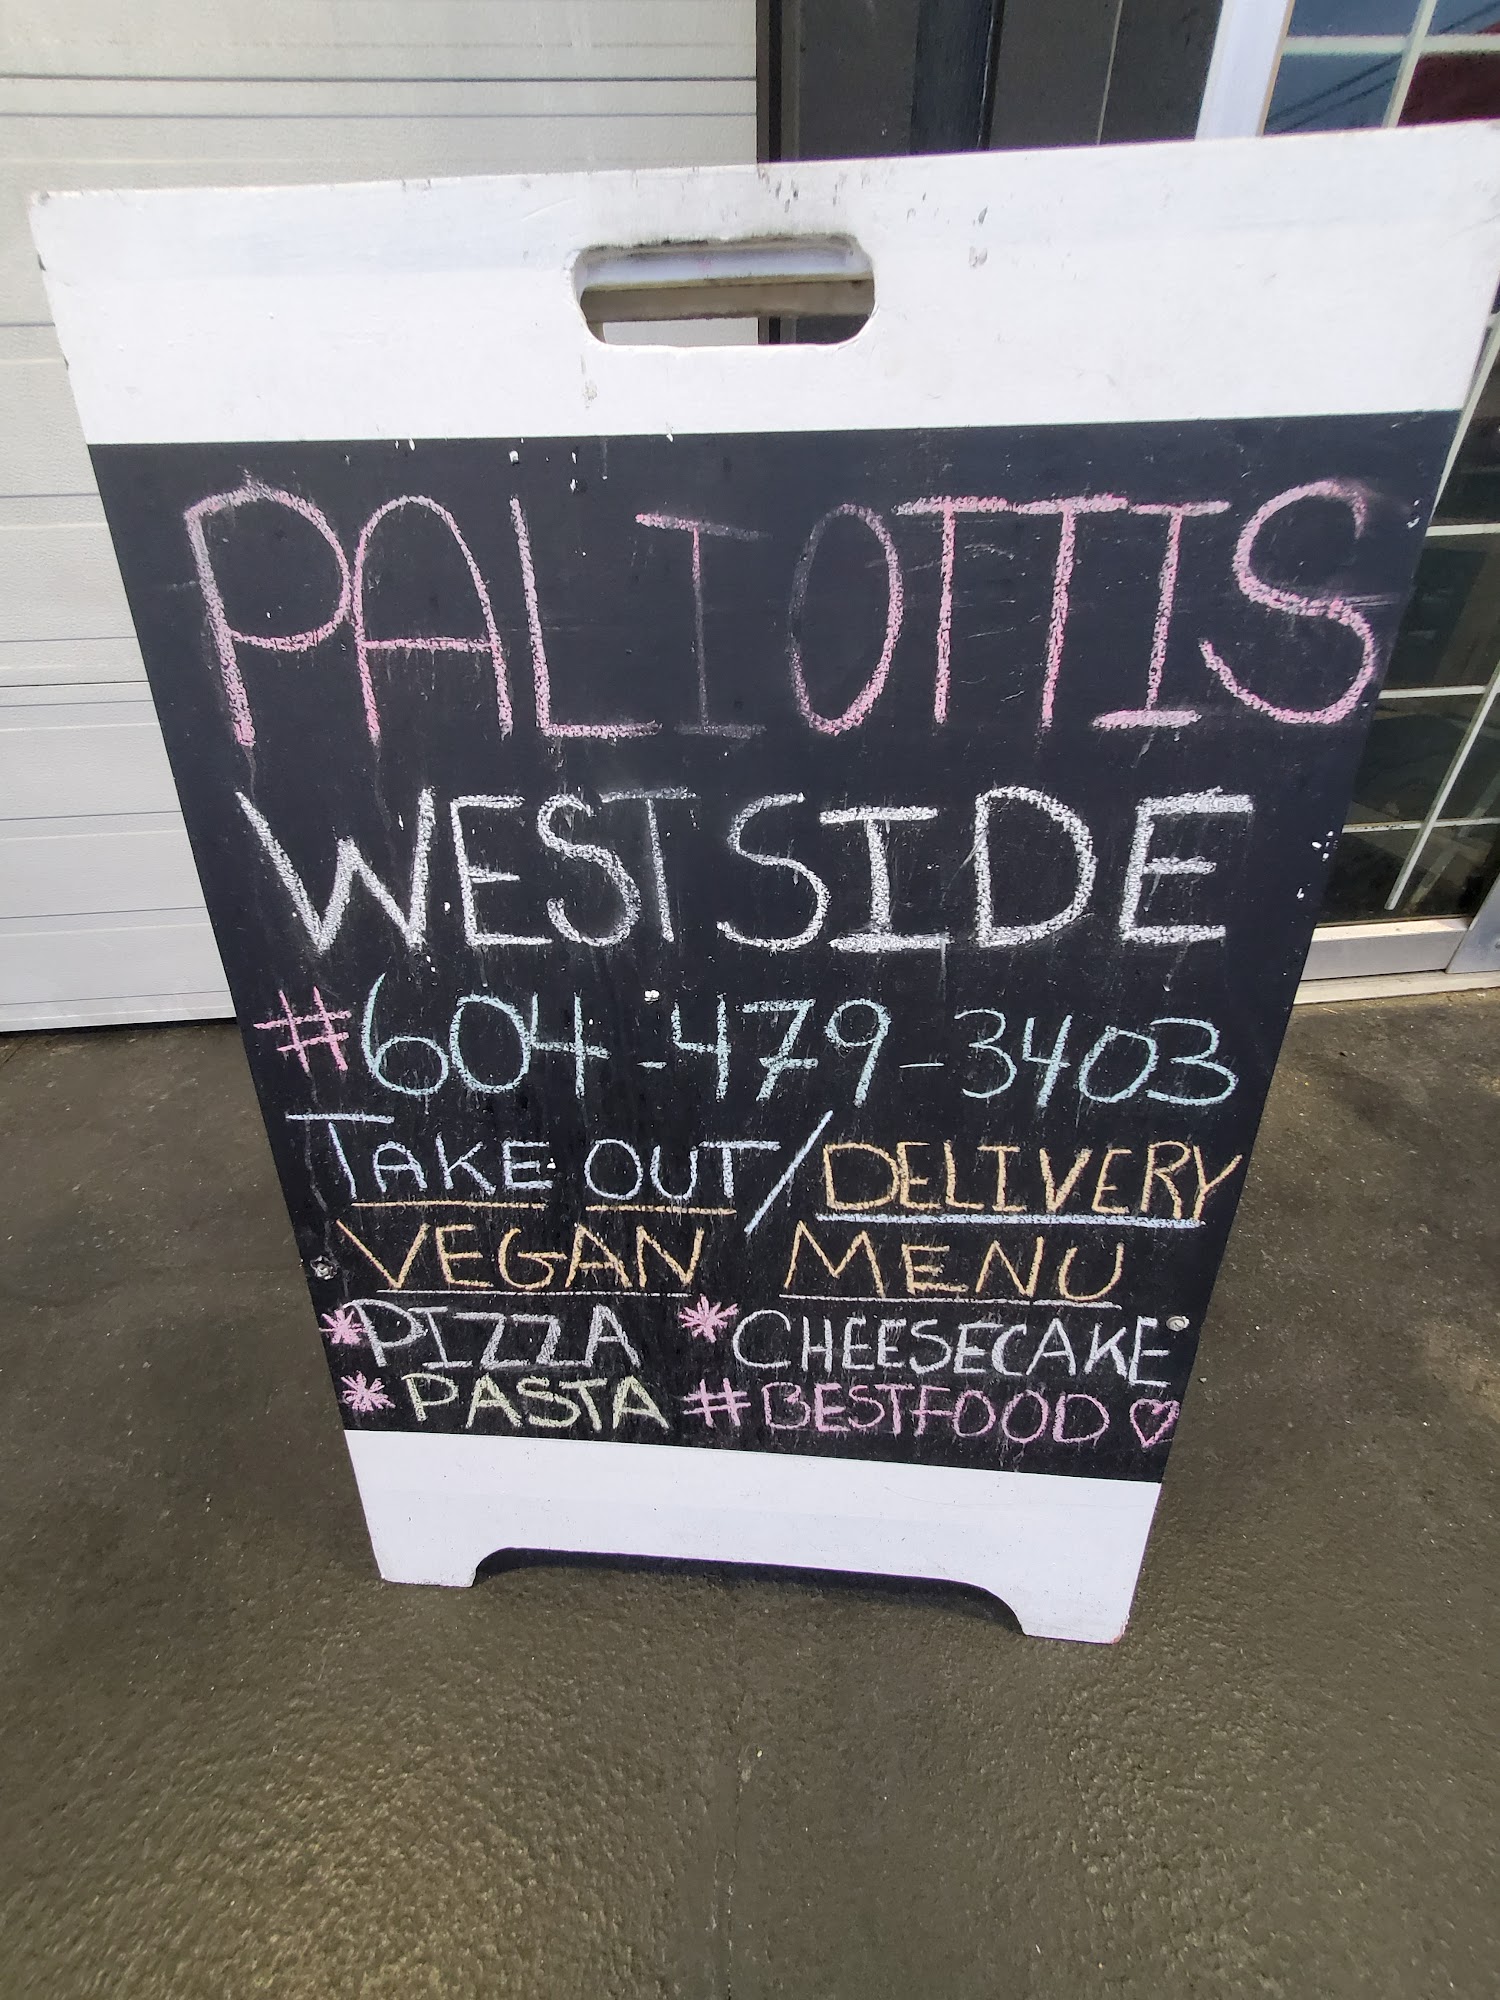 PALIOTTIS
WESTSIDE
#604-479-3403
TAKE OUT/DELIVERY
VEGAN MENU
*PIZZA *CHEESECAKE
*PASTA #BESTFOOD♡